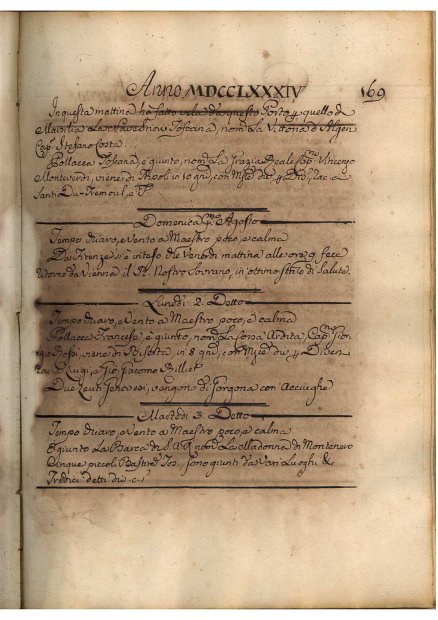 Anno MDCCLXXXIV 169
In questa mattina ha fatto vela da questo Porto p quello di
Marsilia la Toscana, nom.ta La Vittoria d'Algeri
Cap.no Stefano Costa.
Pollacca Toscana, è giunto, nom.ta La Grazia Reale Cap.no Vincenzo
Monteverdi, viene di in 10 gni, con Mzie di e p
Santi Du-Tremoul, e
Domenica p.mo Agosto
Tempo chiaro, e Vento a Maestro poco, e calma
Da Firenze si è inteso che Venerdì mattina alle ora 9 fece
ritorno da Vienna il R. Nostro Sovrano, in ottimo stato di Salute.
Lunedì 2. Detto
Tempo chiaro, e Vento a Maestro poco, e calma
Pollacca Francese, è giunto, nom.ta La Corsa Ardita, Cap.no Gior-
gio Rossi, viene di Biserta, in 8 gni, con Mzie di p Diver.
Luigi, e Gio: Giacomo Billiet
Due Leuti vengono di Gorgona con Acciughe
Martedì 3. Detto
Tempo chiaro, e Vento a Maestro poco, e calma
È giunto La Barca di S.A.R. nom.ta La Madonna di Montenero
Cinque piccoli Bastim.ti Tos., sono giunti da Vari Luoghi &
Tredici detti di